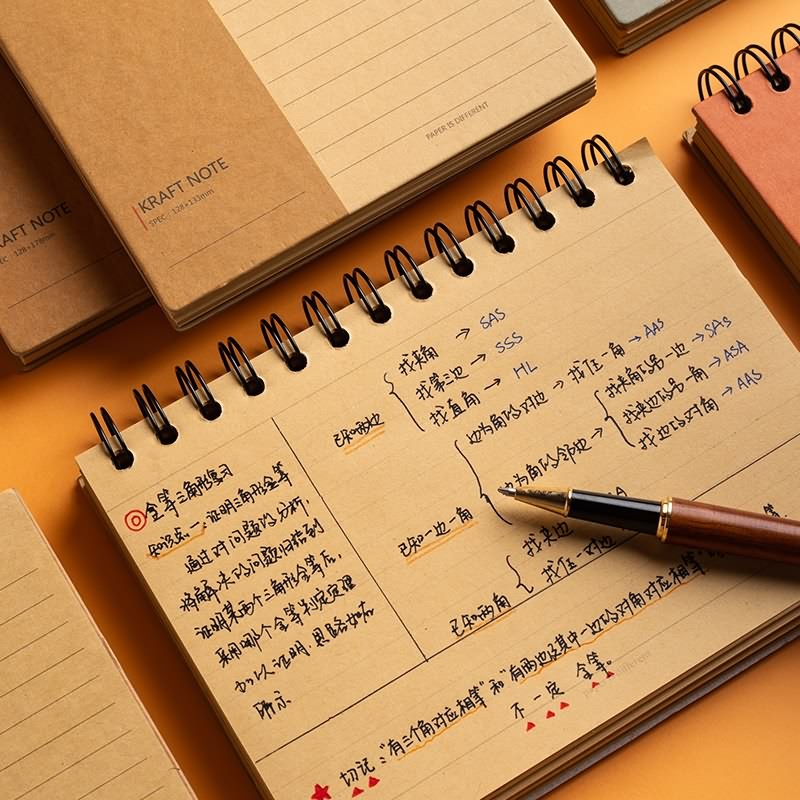 KRAFT NOTE
SPEC : 128×133mm
PAPER IS DIFFERENT
RAFT NOTE
EC : 128×178mm
全等三角形复习
知识点一:证明三角形全等
通过对问题的分析,
将解决的问题归结到
证明某两个三角形全等后,
采用哪个全等判定定理
加以证明,思路如右
所示
已知两边
找夹角 → SAS
找第三边 → SSS
找直角 → HL
已知一边一角
边为角的对边 → 找任一角 → AAS
边为角的邻边 →
找夹角的另一边 → SAS
找夹边的另一角 → ASA
找边的对角 → AAS
已知两角
找夹边
找任一对边
切记:"有三个角对应相等"和"有两边及其中一边的对角对应相等"
不一定全等。